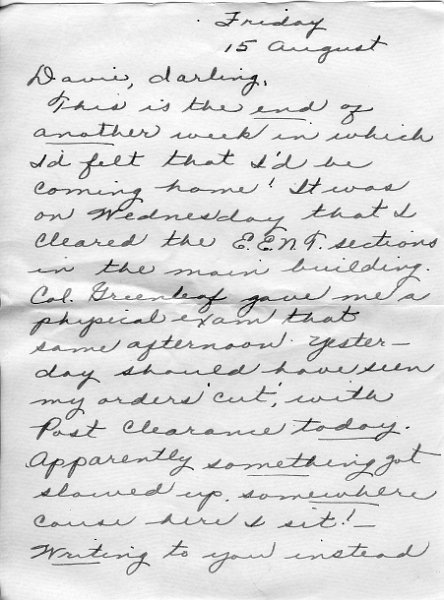 Friday
15 August
Davie, darling,
This is the end of
another week in which
I'd felt that I'd be
coming home! It was
on Wednesday that I
cleared the E.E.N.T. sections
in the main building.
Col. Greenleaf gave me a
physical exam that
same afternoon. Yester-
day should have seen
my orders 'cut', with
Post Clearance today.
Apparently something got
slowed up, somewhere
cause here I sit! -
Writing to you instead